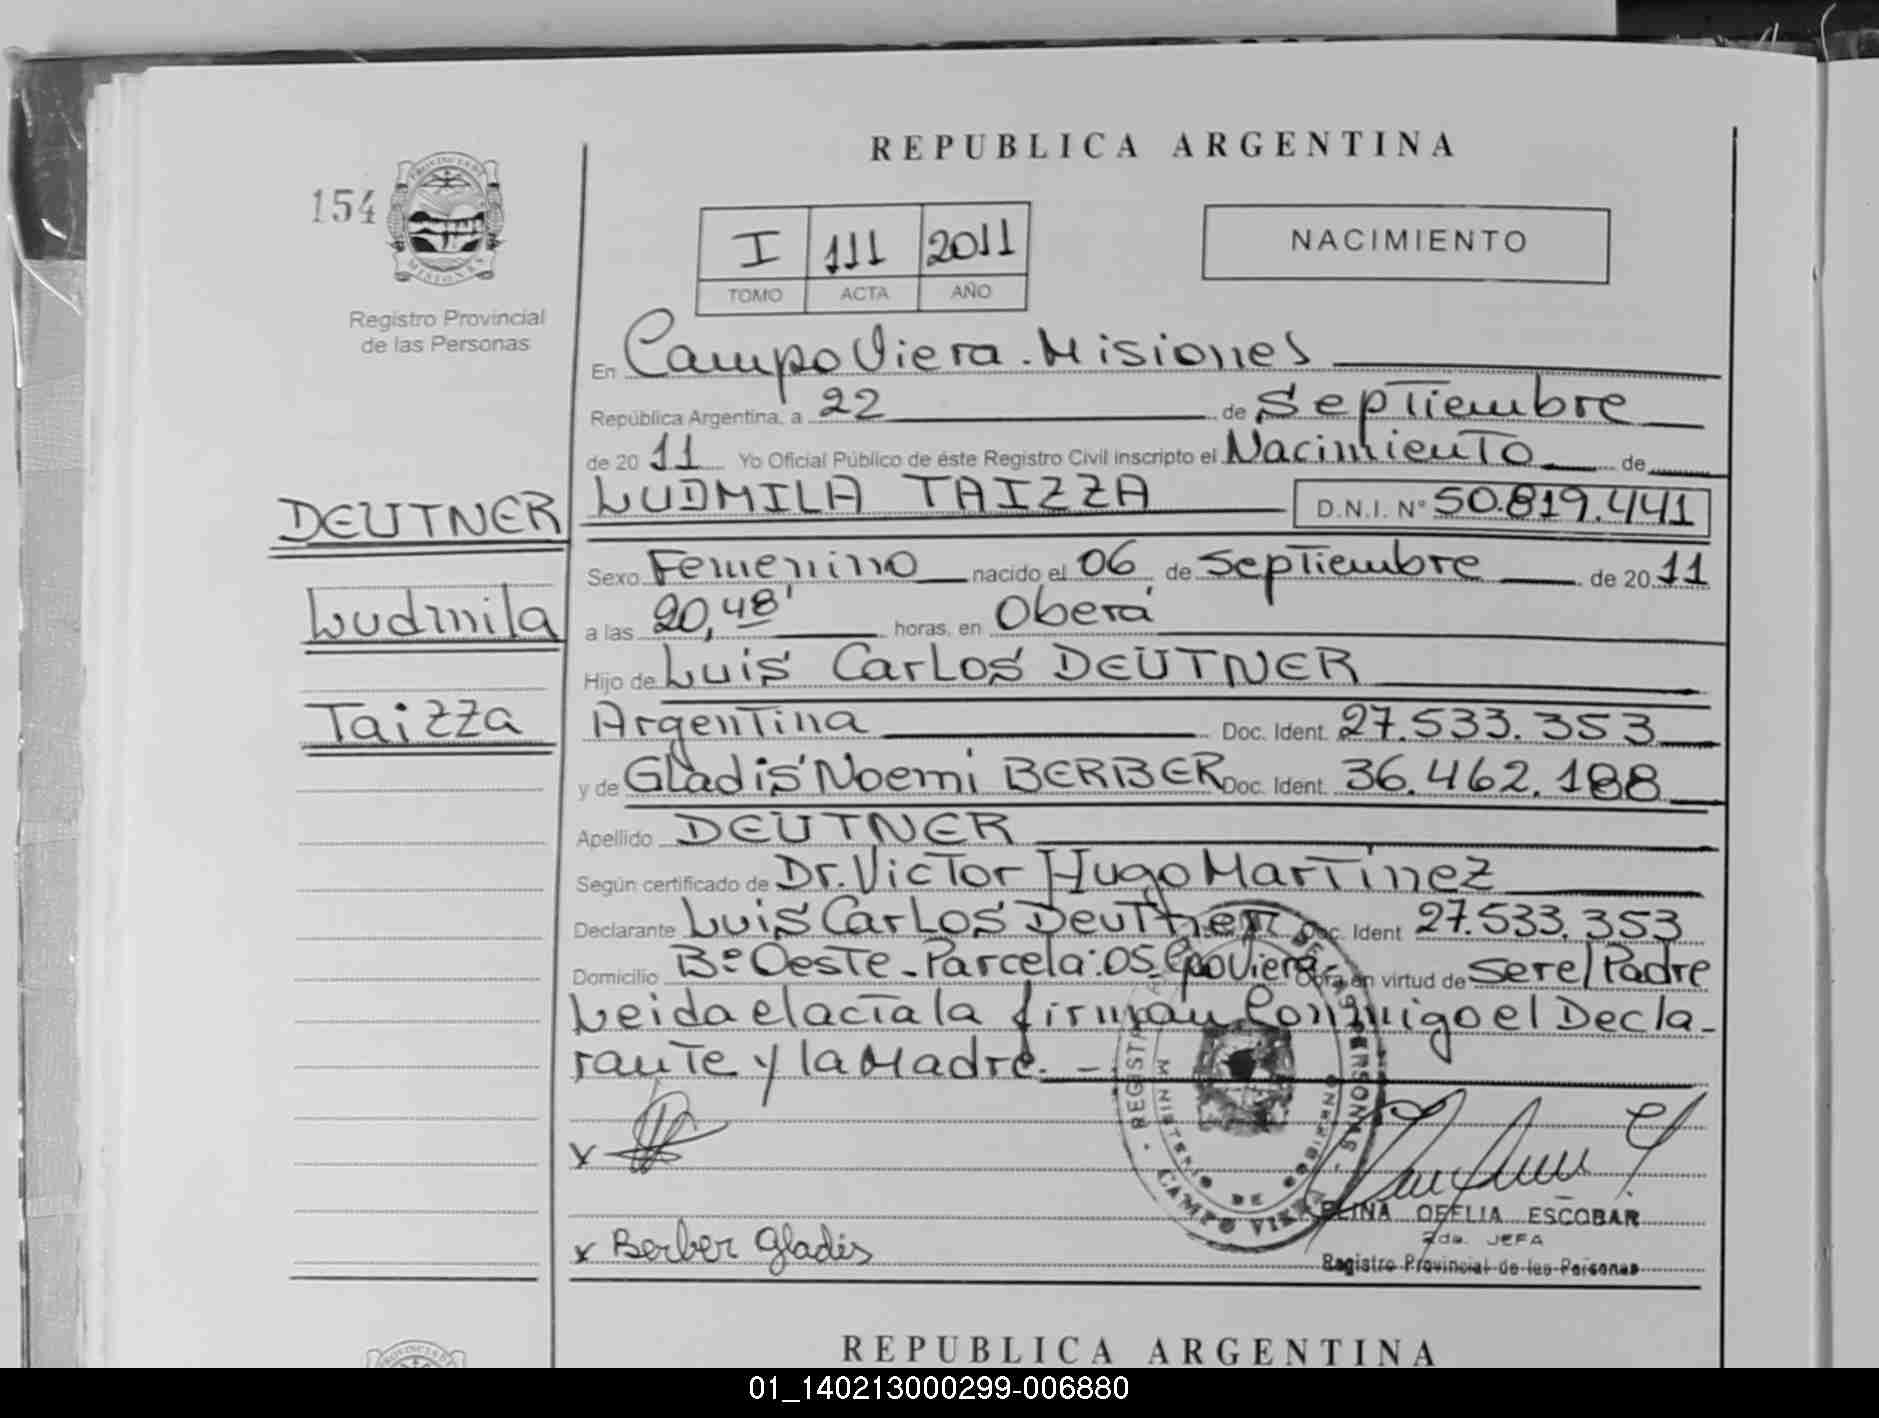 REPUBLICA ARGENTINA
154
PROVINCIA DE MISIONES
Registro Provincial
de las Personas
I 111 2011
TOMO ACTA AÑO
NACIMIENTO
En Campo Viera - Misiones
República Argentina, a 22 de Septiembre
de 2011 Yo Oficial Público de éste Registro Civil inscripto el Nacimiento de
DEUTNER
Ludmila
Taizza
LUDMILA TAIZZA D.N.I. Nº 50.819.441
Sexo Femenino nacido el 06 de Septiembre de 2011
a las 20,48' horas, en Oberá
Hijo de Luis Carlos DEUTNER
Argentina Doc. Ident. 27.533.353
y de Gladis Noemi BERBER Doc. Ident. 36.462.188
Apellido DEUTNER
Según certificado de Dr. Victor Hugo Martínez
Declarante Luis Carlos Deutner Doc. Ident 27.533.353
Domicilio Bº Oeste - Parcela: 05 - Cpo Viera - Obra en virtud de ser el Padre
Leida el acta la firman Conmigo el Decla-
rante y la Madre. -
x
x Berber Gladis
REGISTRO DE LAS PERSONAS
MINISTERIO DE GOBIERNO
CAMPO VIERA
ELINA OFELIA ESCOBAR
2da. JEFA
Registro Provincial de las Personas
REPUBLICA ARGENTINA
PROVINCIA DE
01_140213000299-006880